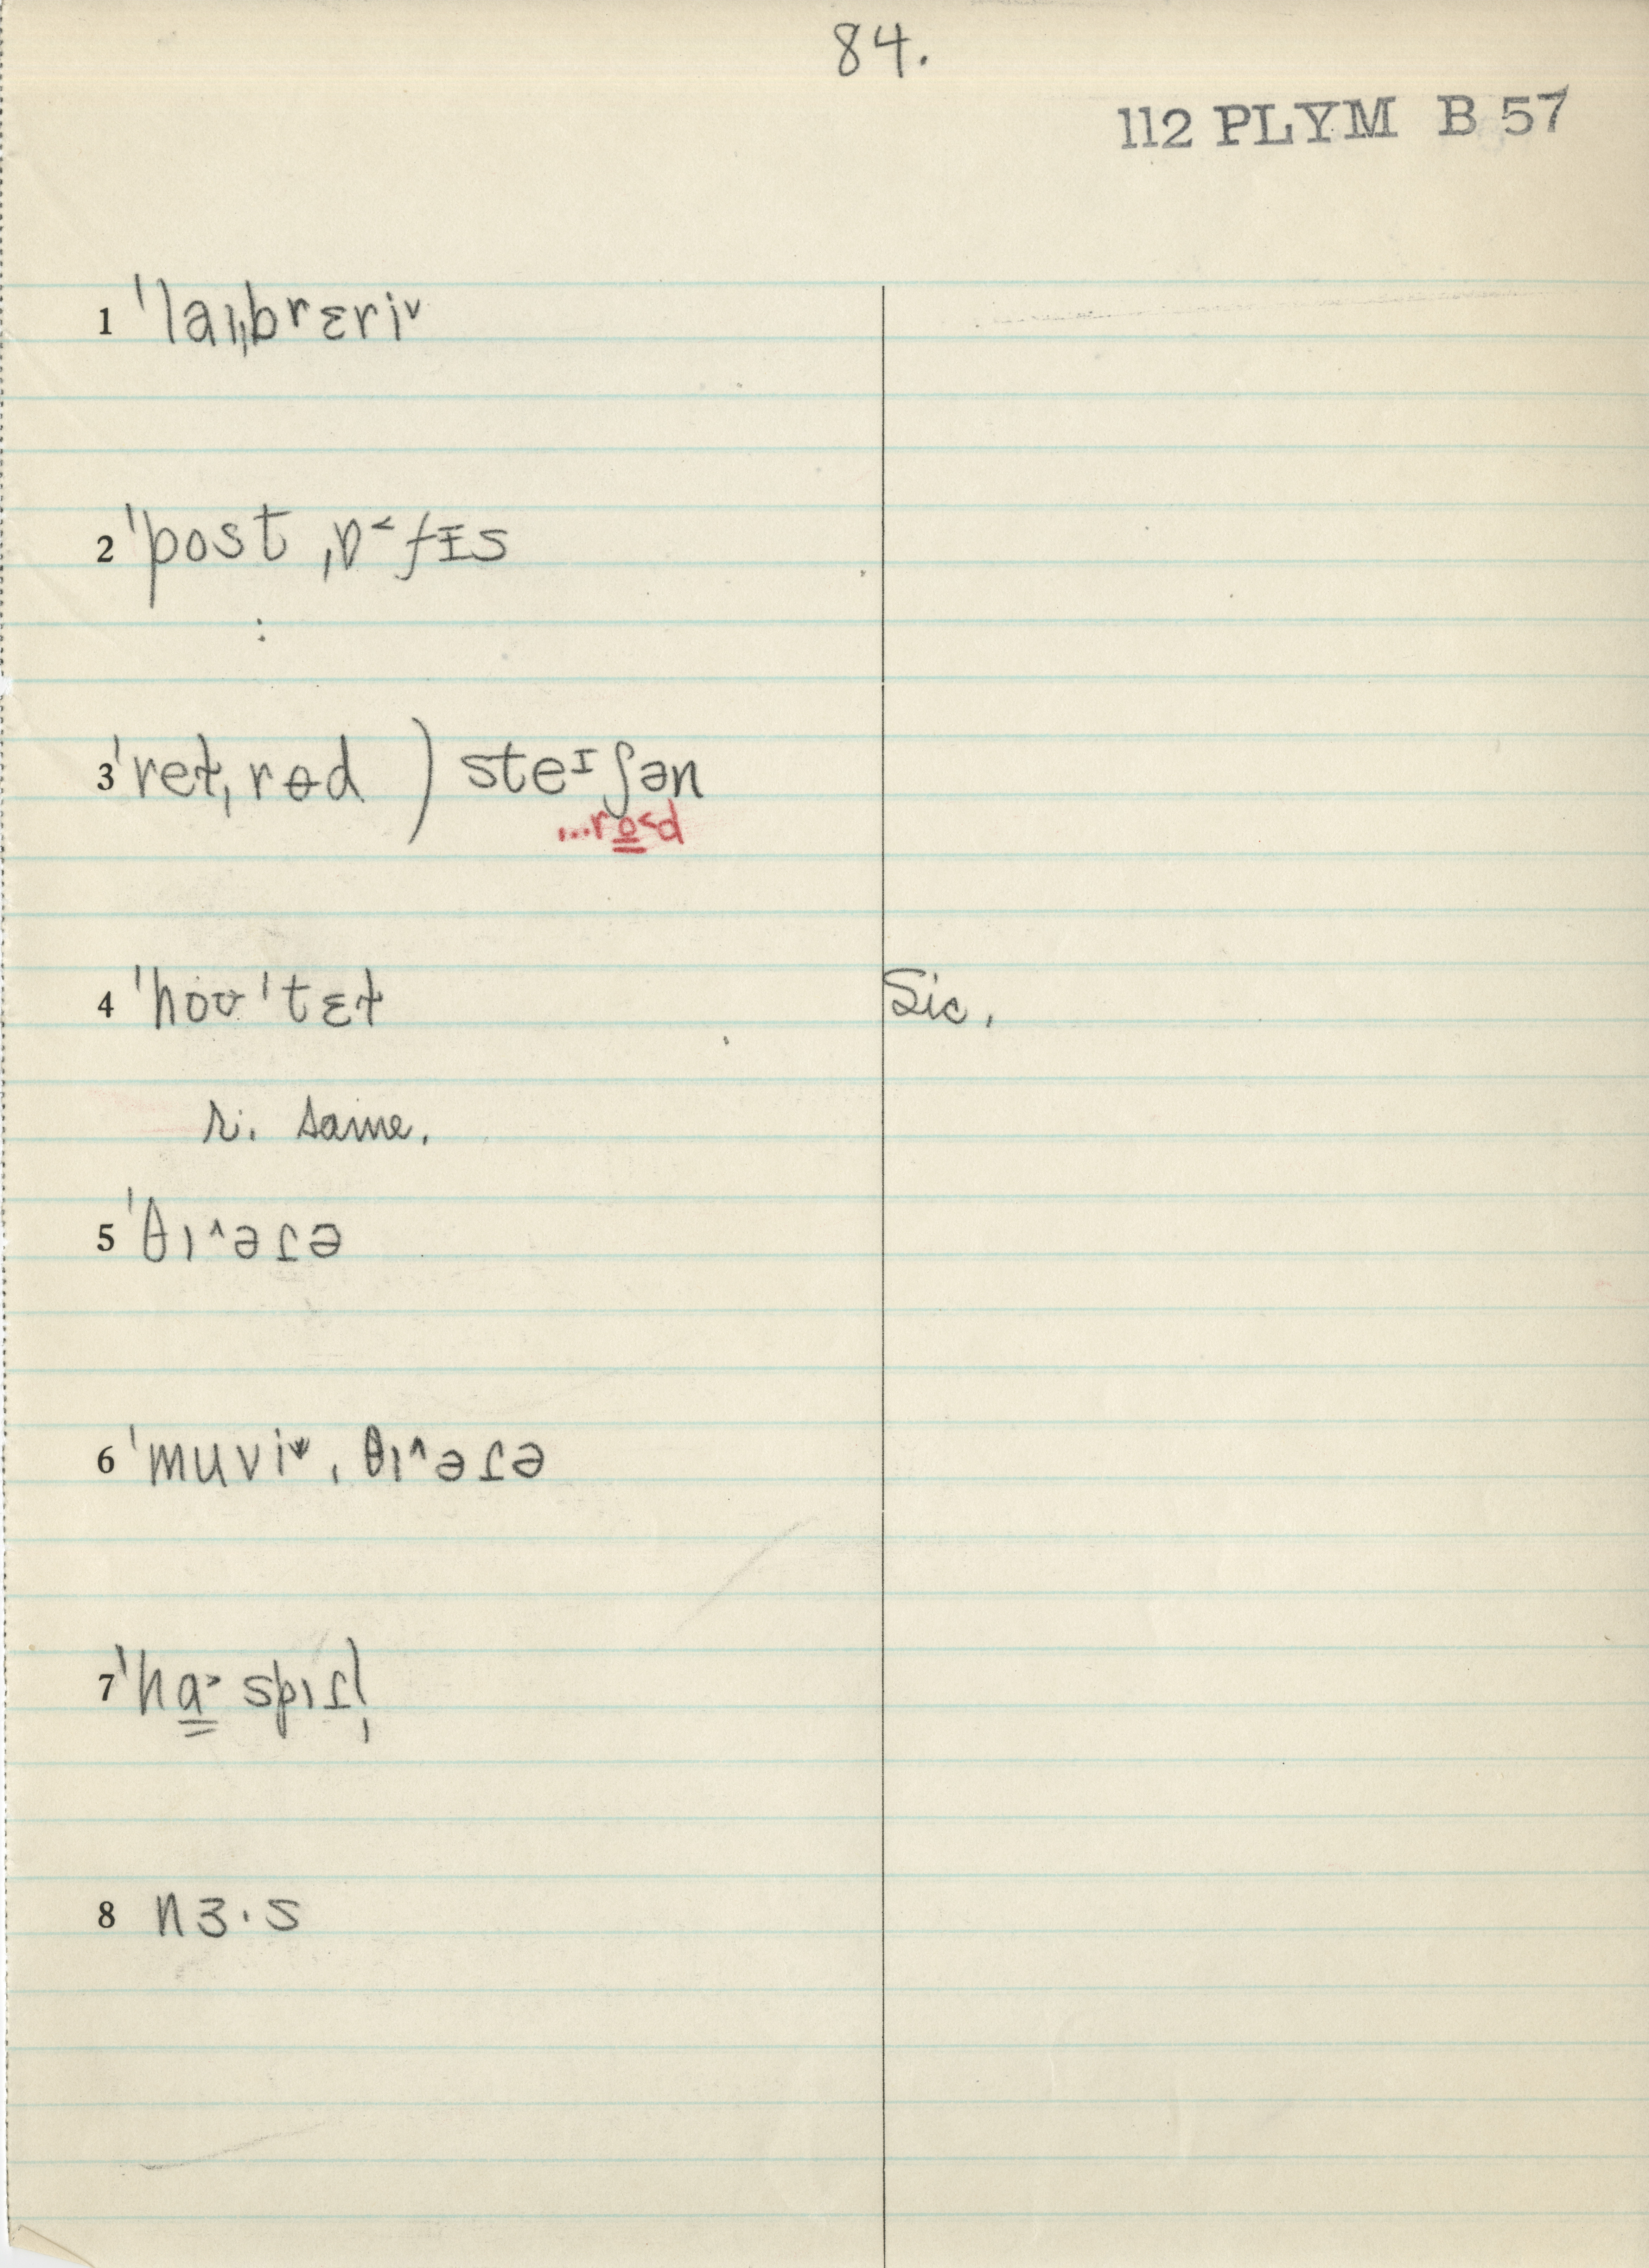 84.
112 PLYM B 57
1 ˈlaɪˌbrɛriᵛ
2 ˈpost ˌɒ˂fɪ̵s
:
3 ˈreɫˌrɵd ) steᶦʃən
...ro̳˂d
4 ˈhoʊˈtɛɫ Sic.
r. same.
5 ˈθɪ^əɾə
6 ˈmuviᵛ ˌθɪ^əɾə
7 ˈhɑ̳˃spɪɾl̩
8 nɜ·s